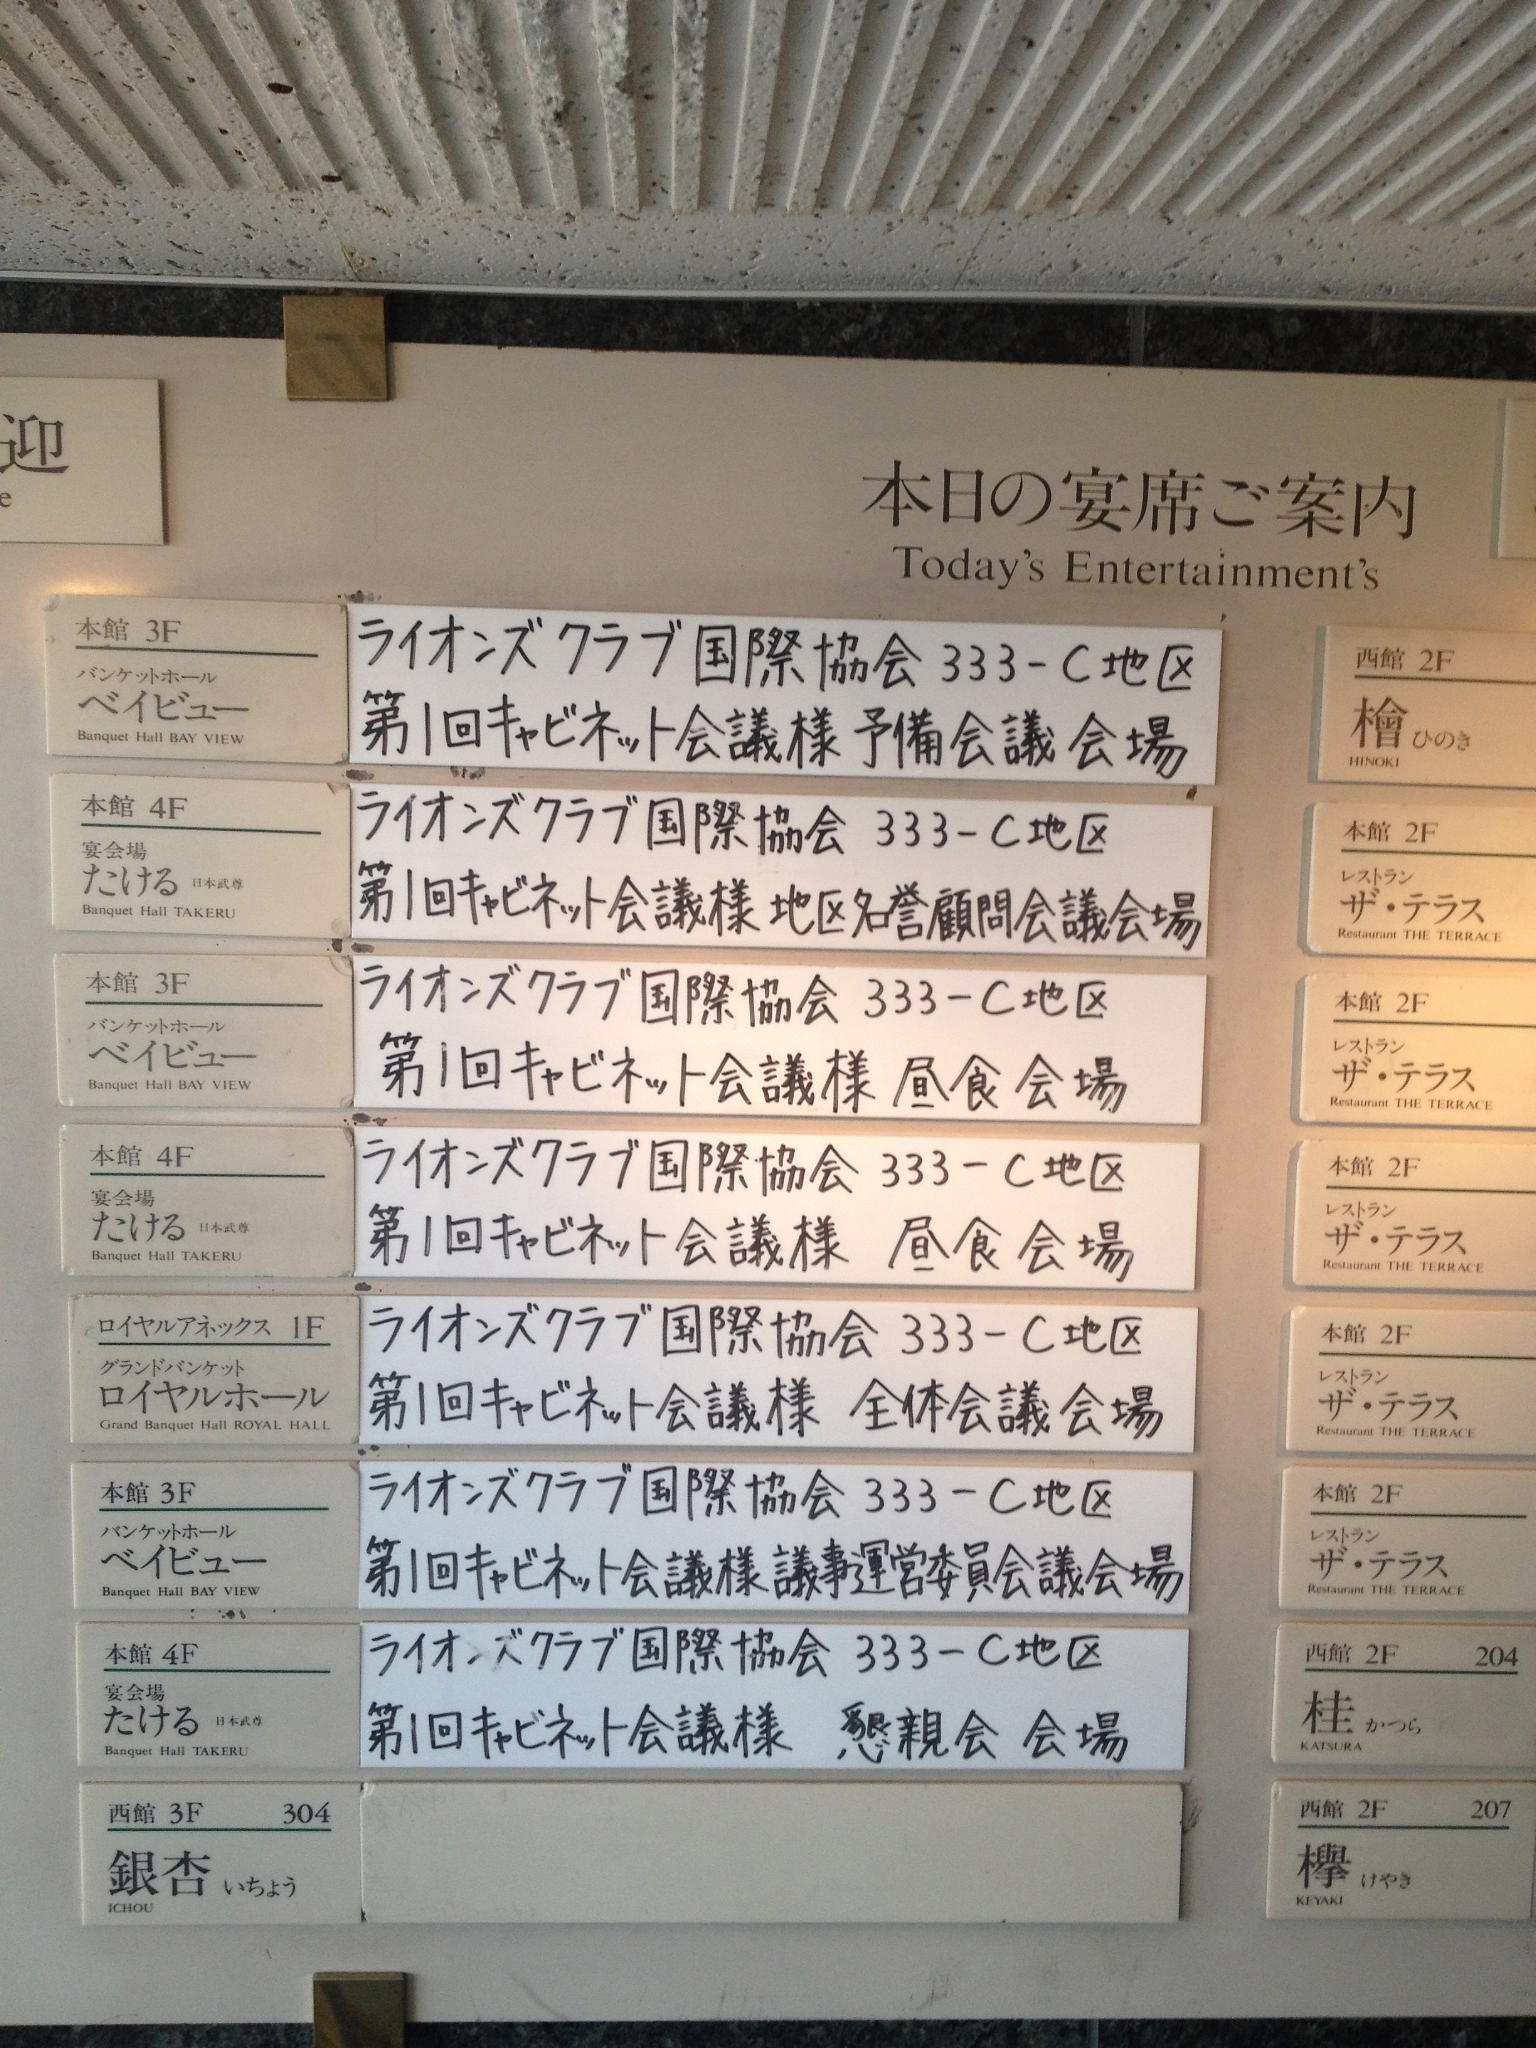 迎
e
本日の宴席ご案内
Today's Entertainment's
本館 3F
バンケットホール
ベイビュー
Banquet Hall BAY VIEW
ライオンズクラブ国際協会 333-C地区
第1回キャビネット会議様 予備会議 会場
本館 4F
宴会場
たける 日本武尊
Banquet Hall TAKERU
ライオンズクラブ国際協会 333-C地区
第1回キャビネット会議様 地区名誉顧問会議会場
本館 3F
バンケットホール
ベイビュー
Banquet Hall BAY VIEW
ライオンズクラブ国際協会 333-C地区
第1回キャビネット会議様 昼食会場
本館 4F
宴会場
たける 日本武尊
Banquet Hall TAKERU
ライオンズクラブ国際協会 333-C地区
第1回キャビネット会議様 昼食会場
ロイヤルアネックス 1F
グランドバンケット
ロイヤルホール
Grand Banquet Hall ROYAL HALL
ライオンズクラブ国際協会 333-C地区
第1回キャビネット会議様 全体会議会場
本館 3F
バンケットホール
ベイビュー
Banquet Hall BAY VIEW
ライオンズクラブ国際協会 333-C地区
第1回キャビネット会議様 議事運営委員会議会場
本館 4F
宴会場
たける 日本武尊
Banquet Hall TAKERU
ライオンズクラブ国際協会 333-C地区
第1回キャビネット会議様 懇親会 会場
西館 3F 304
銀杏 いちょう
ICHOU
西館 2F
檜 ひのき
HINOKI
本館 2F
レストラン
ザ・テラス
Restaurant THE TERRACE
本館 2F
レストラン
ザ・テラス
Restaurant THE TERRACE
本館 2F
レストラン
ザ・テラス
Restaurant THE TERRACE
本館 2F
レストラン
ザ・テラス
Restaurant THE TERRACE
本館 2F
レストラン
ザ・テラス
Restaurant THE TERRACE
西館 2F 204
桂 かつら
KATSURA
西館 2F 207
欅 けやき
KEYAKI